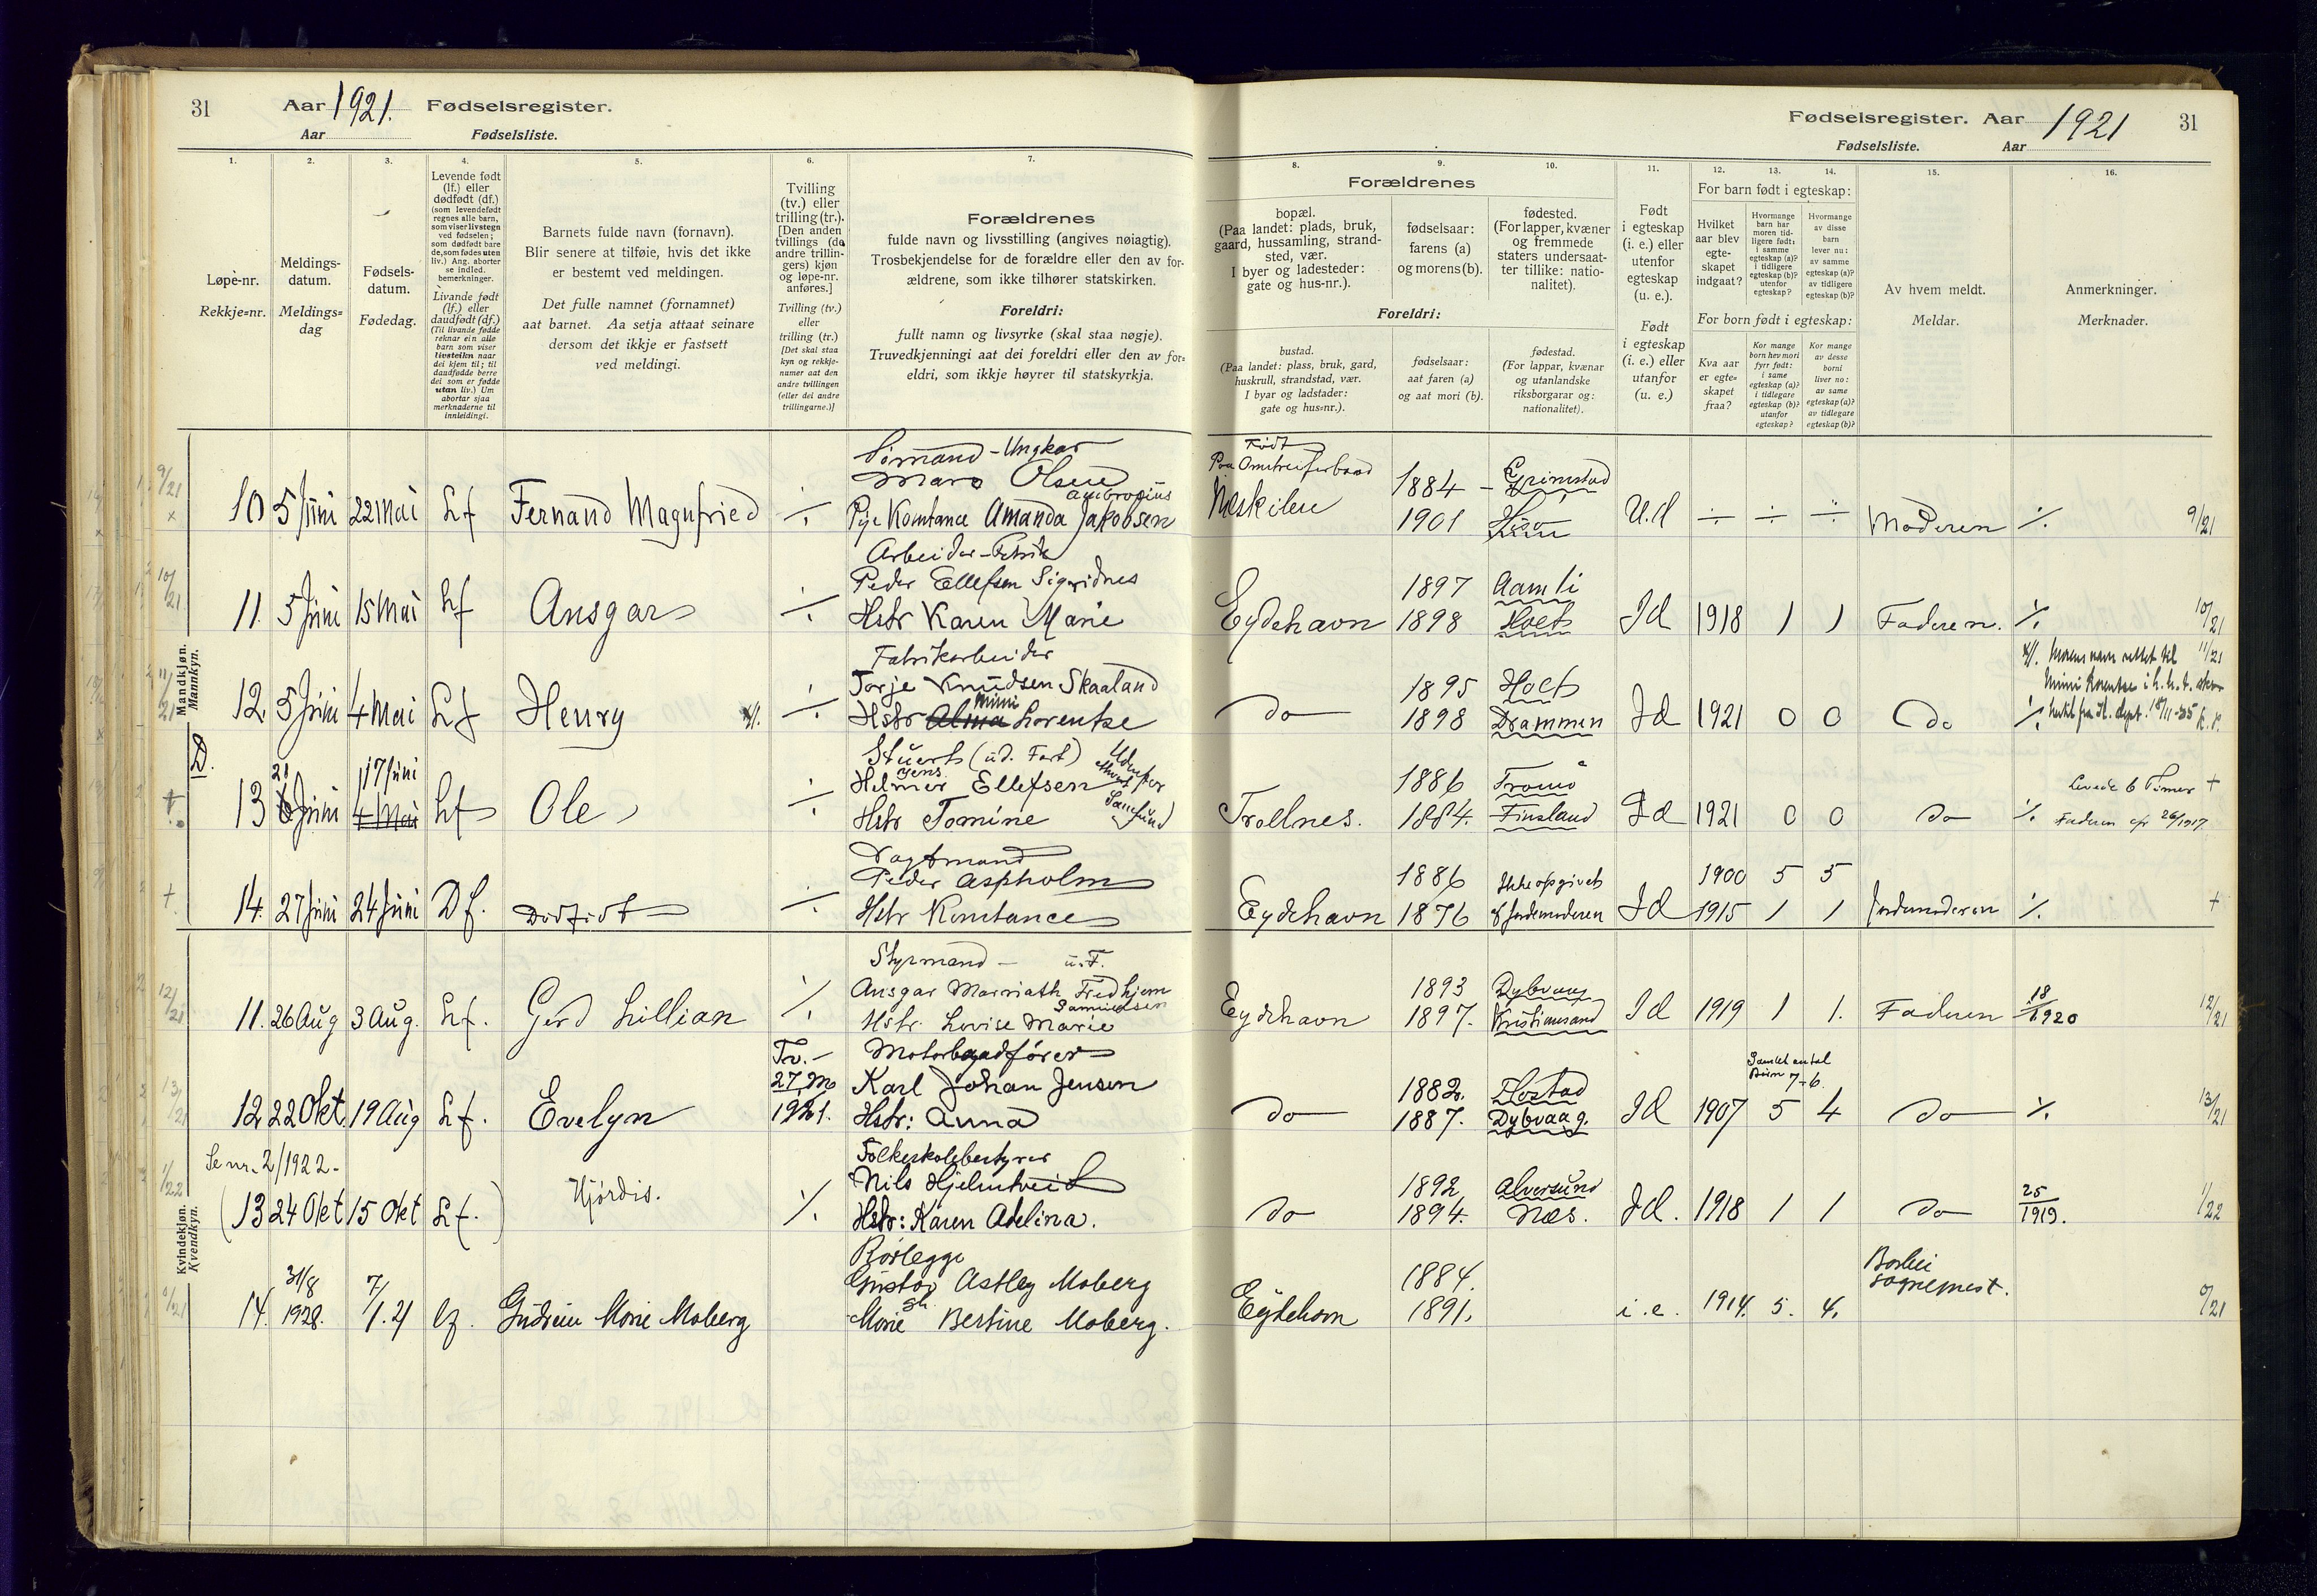 31 Aar 1921. Fødselsregister.
Aar Fødselsliste.
1. 2. 3. 4. 5. 6. 7.
Løpe-nr.
Rekkje-nr.
Meldings-
datum.
Meldings-
dag
Fødsels-
datum.
Fødedag.
Levende født
(lf.) eller
dødfødt (df.)
(som levendefødt
regnes alle barn,
som viser livstegn
ved fødselen;
som dødfødt bare
de, som fødes uten
liv.) Ang. aborter
se indled.
bemerkninger.
Livande født
(lf.) eller
daudfødt (df.)
(Til livande fødde
reknar ein alle
barn som viser
livsteikn naar
dei kjem til; til
daudfødde berre
dei som er fødde
utan liv.) Um
abortar sjaa
merknaderne til
innleidingi.
Barnets fulde navn (fornavn).
Blir senere at tilføie, hvis det ikke
er bestemt ved meldingen.
Det fulle namnet (fornamnet)
aat barnet. Aa setja attaat seinare
dersom det ikkje er fastsett
ved meldingi.
Tvilling
(tv.) eller
trilling (tr.).
[Den anden
tvillings (de
andre trillin-
gers) kjøn
og løpe-nr.
anføres.]
Tvilling (tv.)
eller
trilling (tr.)
[Det skal staa
kyn og rekkje-
numer aat den
andre tvillingen
(eller dei andre
trillingarne.)]
Forældrenes
fulde navn og livsstilling (angives nøiagtig).
Trosbekjendelse for de forældre eller den av for-
ældrene, som ikke tilhører statskirken.
Foreldri:
fullt namn og livsyrke (skal staa nøgje).
Truvedkjenningi aat dei foreldri eller den av for-
eldri, som ikkje høyrer til statskyrkja.
Mandkjøn.
Mannkyn.
Sømand - Ungkar
Olsen
Ambrosius
10 5 Juni 22 Mai Lf Fernand Magnfried ÷ Pige Konstance Amanda Jakobsen
Arbeider - Fabrik
Peder Ellefsen Sigridnes
11. 5 Juni 15 Mai Lf Ansgar ÷ Hstr Karen Marie
Fabrikarbeider
Torje Knudsen Skaaland
Mimi
12. 5 Juni 4 Mai Lf Henry ÷ Hstr Alma Lorentze
D.
Stuert (ud. Fart)
Jens
21 17 Juni Helmer Ellefsen
13 6 Juni 4 Mai Lf Ole ÷ Hstr Tomine
Vagtmand
Peder Aspholm
14. 27 Juni 24 Juni Df. Dødfødt ÷ Hstr Konstance
Kvindekjøn.
Kvendkyn.
Styrmand - u.F.
Ansgar Marniath Fredhjem
Samuelsen
11. 26 Aug 3 Aug. Lf. Gerd Lillian ⁒ Hstr. Lovise Marie
Tv. - Motorbaadfører
27, M Karl Johan Jensen
12 22 Okt. 19 Aug Lf. Evelyn 1921. Hstr: Anna
Se nr. 2/1922 - Folkeskolebestyrer
Nils Hjelmtveit
(13 24 Okt 15 Okt Lf.) Hjørdis. ⁒ Hstr: Karen Adelina.
Rørlegge
31/8 7/ Gustav Astley Moberg
14. 1928. 1.21 lf. Gudrun Marie Moberg Marie Bertine Moberg.
Fødselsregister. Aar 1921 31
Fødselsliste. Aar
8. 9. 10. 11. 12. 13. 14. 15. 16.
Forældrenes
bopæl.
(Paa landet: plads, bruk,
gaard, hussamling, strand-
sted, vær.
I byer og ladesteder:
gate og hus-nr.).
fødselsaar:
farens (a)
og morens (b).
fødested.
(For lapper, kvæner
og fremmede
staters undersaat-
ter tillike: natio-
nalitet).
Foreldri:
bustad.
(Paa landet: plass, bruk, gard,
huskrull, strandstad, vær.
I byar og ladstader:
gate og hus-nr.).
fødselsaar:
aat faren (a)
og aat mori (b).
fødestad.
(For lappar, kvænar
og utanlandske
riksborgarar og:
nationalitet).
Født
i egteskap
(i. e.) eller
utenfor
egteskap
(u. e.).
Født
i egteskap
(i. e.) eller
utanfor
(u. e.)
For barn født i egteskap:
Hvilket
aar blev
egte-
skapet
indgaat?
Hvormange
barn har
moren tid-
ligere født:
i samme
egteskap (a)?
i tidligere
egteskap (b)?
utenfor
egteskap?
Hvormange
av disse
barn
lever nu:
av samme
egteskap (a)?
av tidligere
egteskap (b)?
For born født i egteskap:
Kva aar
er egte-
skapet
fraa?
Kor mange
born hev mori
fyrr født:
i same
egteskap (a)?
i tidlegare
egteskap (b)?
utanfor
egteskap?
Kor mange
av desse
borni
liver no:
av same
egteskap (a)?
av tidlegare
egteskap (b)?
Av hvem meldt.
Meldar.
Anmerkninger.
Merknader.
Født
Paa Omstreiferbaad 1884 - Grimstad
Neskilen 1901 Hisø U.d ÷ ÷ ÷ Moderen ⁒ 9/21
1897 Aamli
Eydehavn 1898 Holt Id 1918 1 1 Faderen. ⁒ 10/21
Morens navn rettet til 11/21
1895 Holt
Do 1898 Drammen Id 1921 0 0 Do ⁒
1886 Tromø Levede 6 Timer +
Trollnes. 1884. Finsland Id 1921 0 0 Do ⁒
1886 Ikke opgivet 1900 5 5
Eydehavn 1876 af Jordmoderen Id 1915 1 1 Jordmoderen ⁒ +
1893 Dybvaag
Eydehavn 1897. Kristiansand Id 1919 1 1. Faderen 18/1920 12/21
Samlet antal
Børn 7-6.
1882. Flostad
Do 1887. Dybvaag. Id 1907 5 4 Do ⁒ 13/21
1892 Alversund
Do 1894. Næs. Id. 1918 1 1 Do 25/1919. 1/22
Borlei
1884. sogneprest.
Eydehavn 1891. i.e. 1914. 5. 4. 0/21